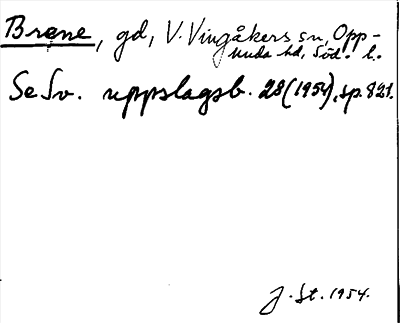 Brene, gd, V. Vingåkers sn, Opp-
unda hd, Söd. l.
Se Sv. uppslagsb. 28 (1954), sp. 821.
J. St. 1954.